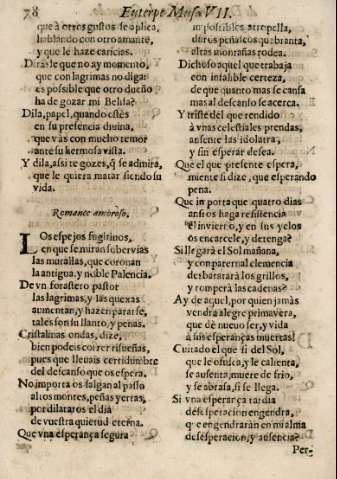 78 Euterpe Musa VII.
que à otros gustos se aplica,
hablando con otro amante,
y que le haze caricias.
Dirasle que no ay momento,
que con lagrimas no diga:
es possible que otro dueño
ha de gozar mi Belisa?
Dila, papel, quando estès
en su presencia diuina,
que vàs con mucho temor
ante su hermosa vista.
Y dila, assi te gozes, q̃ se admira,
que le quiera matar siendo su
vida.
Romance amoroso.
LOs espejos fugitiuos,
en que se miran soberuias
las murallas, que coronan
la antigua, y noble Palencia.
De vn forastero pastor
las lagrimas, y las quexas
aumentan, y hazen pararse,
tales son su llanto, y penas.
Cristalinas ondas, dize,
bien podeis correr risueñas,
pues que lleuais certidumbre
del descanso que os espera.
No importa os salgan al passo
altos montes, peñas yertas,
por dilataros el dia
de vuestra quietud eterna.
Que vna esperança segura
impossibles atropella,
duros peñascos quebranta,
altas montañas rodea.
Dichoso aquel que trabaja
con infalible certeza,
de que quanto mas se cansa
mas al descanso se acerca.
Y triste del que rendido
à vnas celestiales prendas,
ausente las idolatra,
y sin esperar desea.
Que el que presente espera,
miente si dize, que esperando
pena.
Que importa que quatro dias
ansi os haga resistencia
el inuierno, y en sus yelos
os encarcele, y detenga?
Si llegarà el Sol mañana,
y con paternal clemencia
desbaratarà los grillos,
y romperà las cadenas?
Ay de aquel, por quien jamàs
vendrà alegre primauera,
que dè nueuo ser, y vida
à sus esperanças muertas!
Cuitado el que si del Sol,
que le ofusca, y le calienta,
se ausenta, muere de frio,
y se abrasa, si se llega.
Si vna esperança tardia
desesperacion engendra,
q̃ engendraràn en mi alma
desesperacion, y ausencia?
Per-